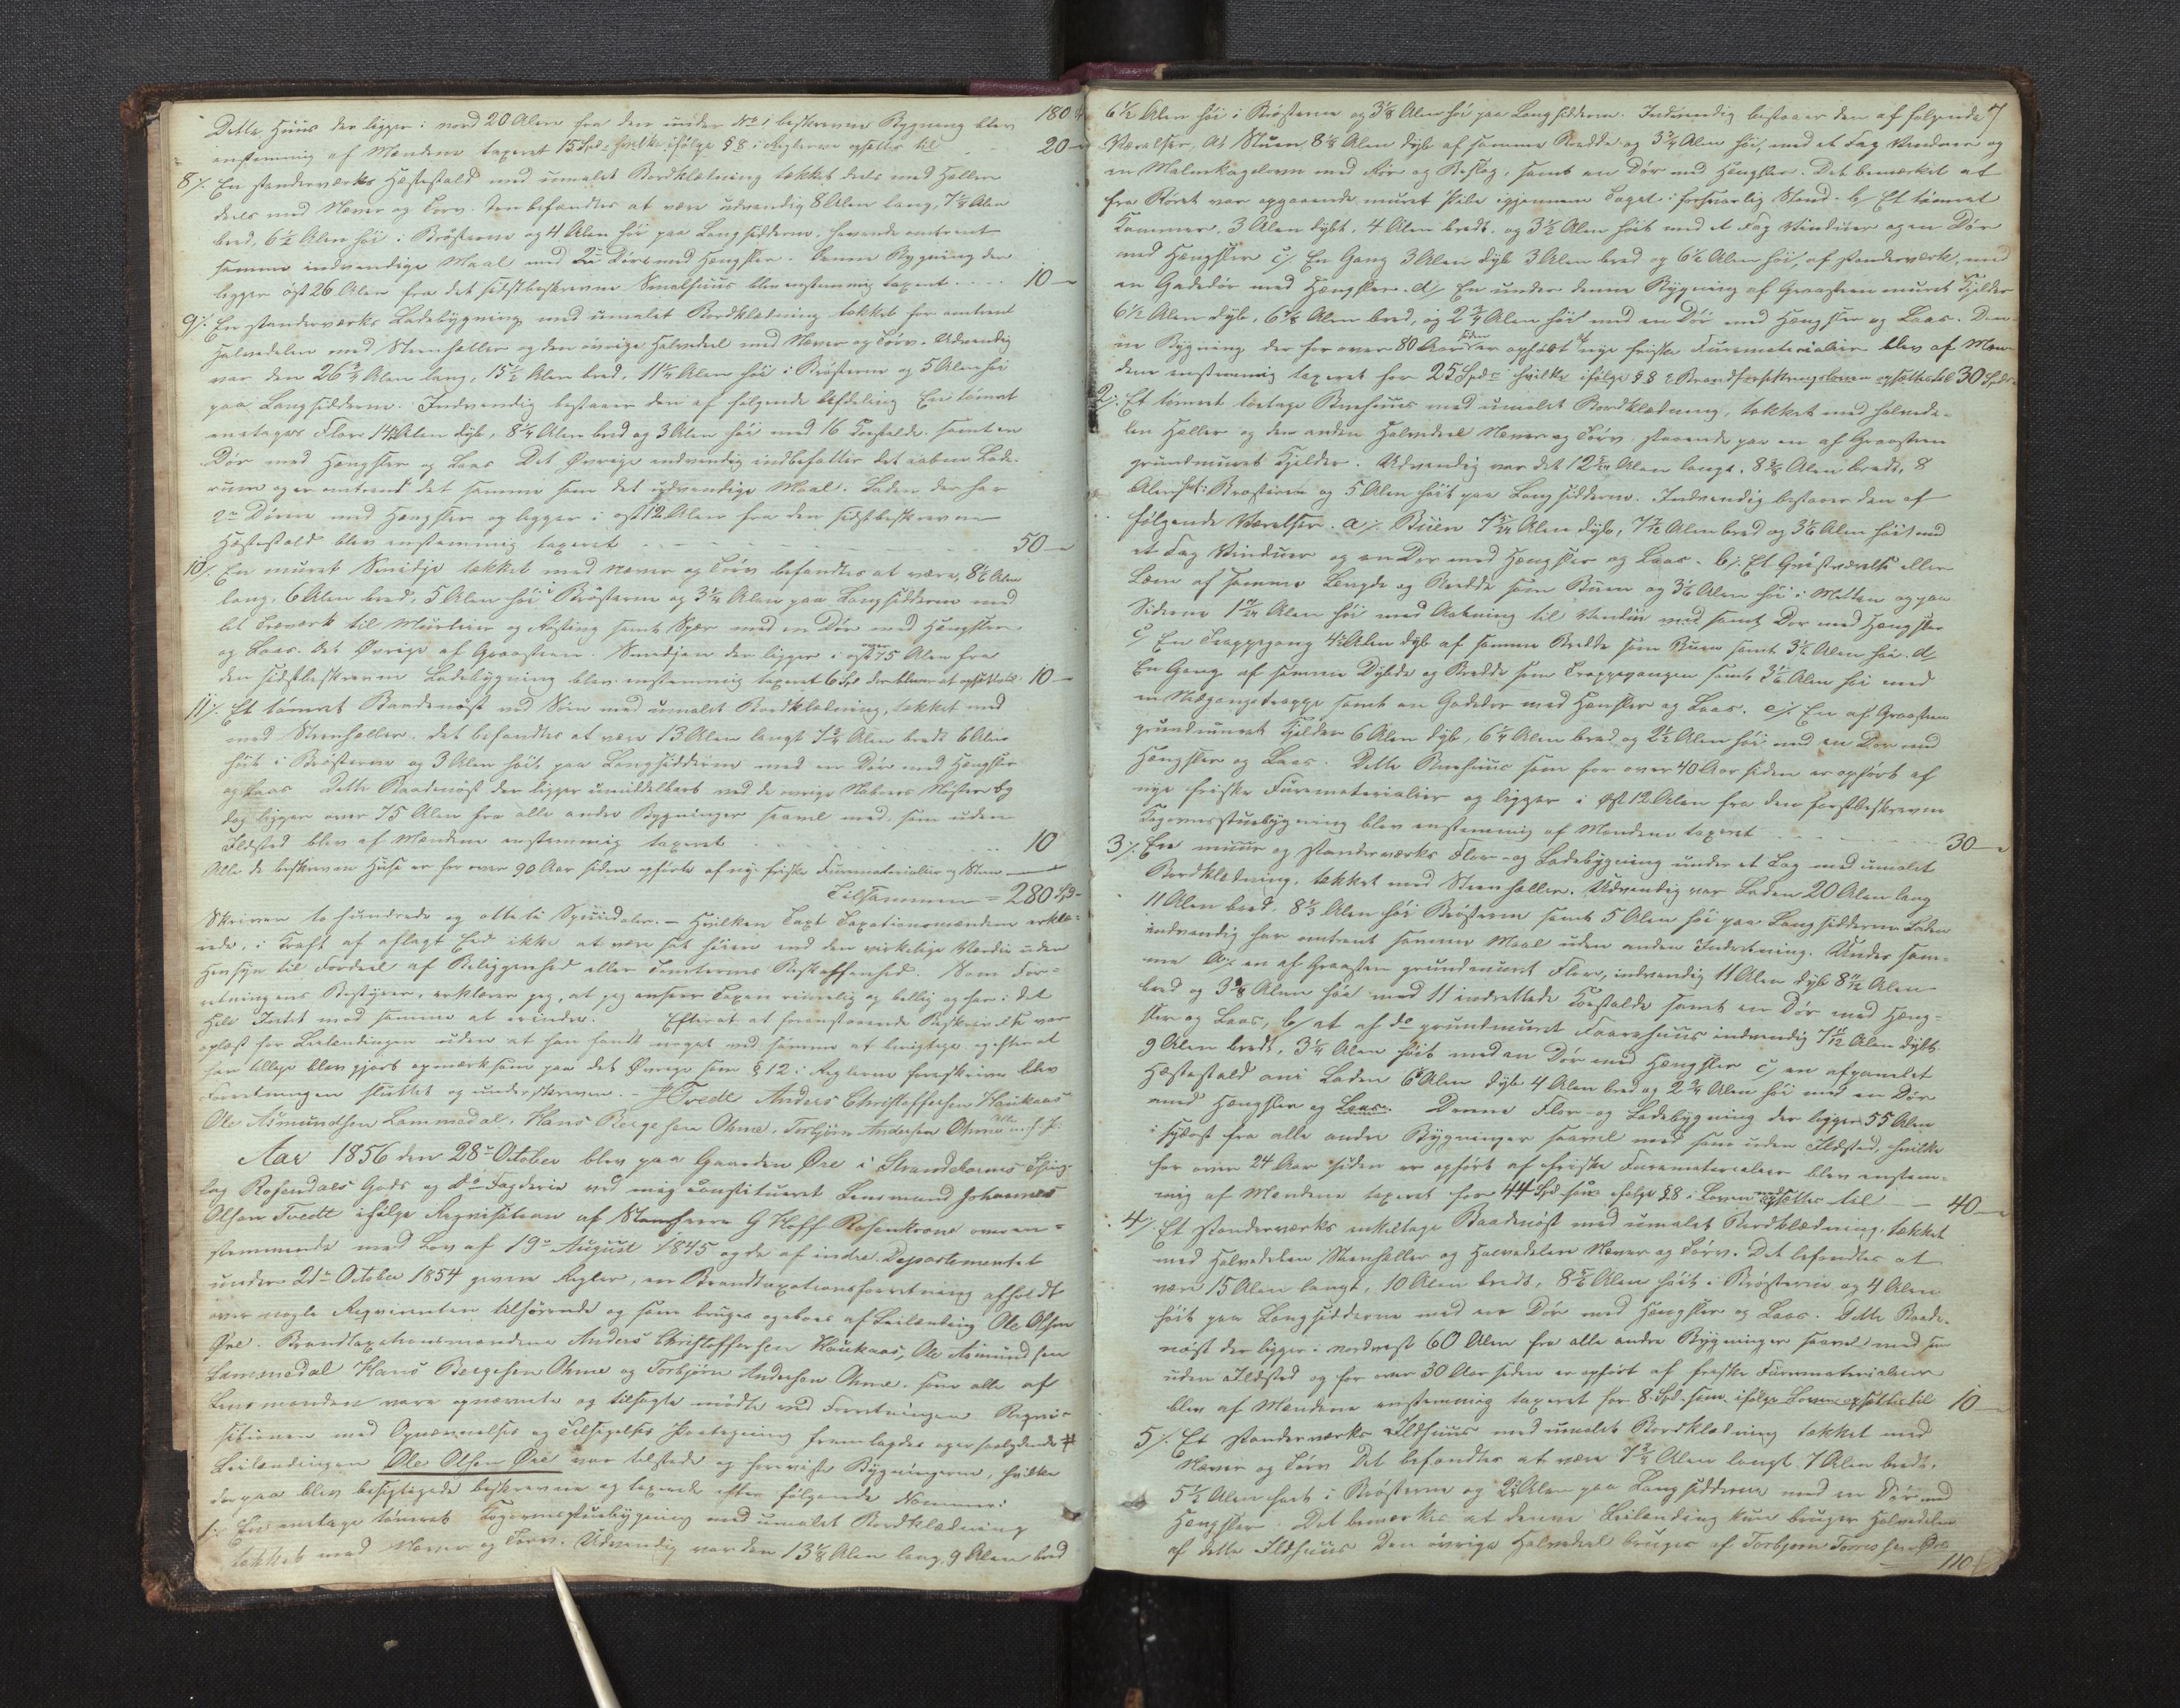 180
Dette Huus der ligger i nord 20 Alen fra den under No 1 beskrevne Bygning blev
enstemmig af Mændene taxeret 15 Spd hvilke ifølge § 8 i Reglerne opsættes til 20 –
8/. En standerværks Hæstestald med umalet Bordklædning tækket deels med Heller
deels med Næver og Torv. Den befandtes at være udvendig 8 Alen lang, 7 1/8 Alen
bred, 6 1/2 Alen høi i Brösterne og 4 Alen høi paa Langsidderne, havende omtrent
samme indvendige Maal med 2de Døre med Hængsler. Denne Bygning der
ligger øst 26 Alen fra det sidstbeskrevne Smalhuus blev enstemmig taxeret .... 10 –
9/. En standerværks Ladebygning med umalet Bordklædning tækket for omtrent
Halvedelen med Steenheller og den øvrige Halvedeel med Næver og Torv. Udvendig
var den 26 3/4 Alen lang, 15 1/2 Alen bred, 11 1/4 Alen høi i Brösterne og 5 Alen høi
paa Langsidderne. Indvendig bestaaer den af følgende Afdeling En tømret
eenetages Flor 14 Alen dyb, 8 1/4 Alen bred og 3 Alen høi med 16 Koestalde samt en
Dør med Hængsler og Laas Det Øvrige indvendig indbefatter det aabne Lade-
rum og er omtrent det samme som det udvendige Maal. Laden der har
2de Dörre med Hængsler og ligger i øst 12 Alen fra den sidstbeskrevne
Hæstestald blev enstemmig taxeret 50 –
10/. En muret Smidje tækket med Næver og Torv befandtes at være 8 1/2 Alen
lang, 6 Alen bred, 5 Alen høi i Brösterne og 3 1/4 Alen paa Langsidderne med
lit Træværk til og Røsting samt Spær med en Dør med Hængsler
og Laas. Det Øvrige af Graasteen. Smedjen der ligger i øst over 75 Alen fra
den sidstbeskrevne Ladebygning blev enstemmig taxeret 6 Spd der bliver at opsætte til 10 –
11/. Et tömret Baadenöst ved Söen med umalet Bordklædning, tækket med
med Steenheller. Det befandtes at være 13 Alen langt 7 3/4 Alen bredt 6 Alen
höit i Brösterne og 3 Alen höit paa Langsidderne med en Dør med Hængsler
og Laas Dette Baadenöst der ligger umiddelbart ved de øvrige Naboers Nöster og
dog ligger over 75 Alen fra alle andre Bygninger saavel med som uden
Ildsted blev af Mændene enstemmig taxeret 10
Alle de beskrevne Huse er for over 90 Aar siden opførte af nye friske Furematerialier og Steen
Tilsammen = 280 Spd
Skriver to hundrede og otteti Speciedaler. – Hvilken Taxt Taxationsmændene erklæ-
rede, i Kraft af aflagt Eed ikke at være sat høiere end den virkelige Værdie uden
Hensyn til Fordeel af Beliggenhed eller Tomternes Beskaffenhed. Som For-
retningens Bestyrer, erklærer jeg, at jeg anseer Taxten rimelig og billig og har i det
Hele Intet mod samme at erindre. Efterat at foranstaaende Beskrivelse var
oplæst for Leilændingen uden at han fandt noget ved samme at berigtige og efterat
han tillige blev gjort opmærksom paa det Øvrige som § 12 i Reglerne foreskriver blev
Forretningen sluttet og underskreven. – J Tvedt Anders Christoffersen Haukaas
Ole Asmundsen Lammedal, Hans Bergesen Ohme, Torbjörn Andersen Ohme alle m. f. P:
Aar 1856 den 28de October blev paa Gaarden Øre i Strandebarms Thing-
lag Rosendals Gods og do Fogderie ved mig constitueret Lensmand Johannes
Olsen Tvedt ifølge Reqvisition af Stamherre G Hoff Rosenkrone overeens-
stemmende med Lov af 19de August 1845 og de af indre Departementet
under 21de October 1854 givne Regler, en Brandtaxationsforretning afholdt
over nogle Reqvirenten tilhørende og som bruges og eboes af Leilænding Ole Olsen
Øre. Brandtaxationsmændene Anders Christoffersen Haukaas, Ole Asmundsen
Lammedal Hans Bergesen Ohme og Torbjörn Andersen Ohme som alle af
Lensmanden vare opnævnte og tilsagte mödte ved Forretningen. Reqvi-
sitionen med Opnævnelses og Tilsigelses Paategning fremlagdes og er saalydende #
Leilændingen Ole Olsen Øre var tilstede og foreviste Bygningerne, hvilke
derpaa blev besigtigede beskrevne og taxerede efter følgende Nommer:
1/. En eenetage tömret Røgovnsstuebygning med umalet Bordklædning
tækket med Næver og Torv. Udvendig var den 13 1/8 Alen lang, 9 Alen bred
7
6 1/2 Alen høi i Brösterne og 3 1/8 Alen høi paa Langsidderne. Indvendig bestaaer den af følgende
Værelser, a/ Stuen, 8 1/4 Alen dyb af samme Bredde og 3 3/4 Alen høi, med et Fag Vinduer og
en Malmkagelovn med Rör og Beslag, samt en Dør med Hængsler. Det bemærkes at
fra Röret var opgaaende muret Pibe igjennem Taget i forsvarlig Stand. b/ Et tömret
Kammer, 3 Alen dybt, 4 Alen bredt, og 3 1/2 Alen höit med et Fag Vinduer og en Dör
med Hængsler c/ En Gang 3 Alen dyb 3 Alen bred og 6 1/2 Alen høi, af standerværk, med
en Gadedör med Hængsler. d/ En under denne Bygning af Graasteen muret Kjelder
6 1/2 Alen dyb, 6 7/8 Alen bred, og 2 3/4 Alen höi med en Dør med Hængsler og Laas. Den-
ne Bygning der for over 80 Aar siden er opført af nye friske Furematerialier blev af Mæn-
dene enstemmig taxeret for 25 Spd hvilke ifølge § 8 i Brandforsikringsloven opsættes til 30 Spd
2/. Et tömret toetage Buehuus med umalet Bordklædning, tækket med Halvede-
len Heller og den anden Halvedeel Næver og Torv, staaende paa en af Graasteen
grundmuret Kjelder. Udvendig var det 12 Alen langt, 8 3/8 Alen bredt, 8
Alen höi i Brøsterne og 5 Alen höit paa Langsidderne. Indvendig bestaaer den af
følgende Værelser. a/. Buen 7 Alen dyb, 7 7/12 Alen bred og 3 1/6 Alen høi med
et Fag Vinduer og en Dør med Hængsler og Laas. b/. Et Qvistværelse eller
Læm af samme Længde og Bredde som Buen og 3 1/6 Alen høi i Midten og paa
Siderne 1 Alen høi med Aabning til Vindu med samt Dør med Hængsler
c/ En Trappegang 4 Alen dyb af samme Bredde som Buen samt 3 1/2 Alen høi. d/
En Gang af samme Dybde og Bredde som Trappegangen samt 3 1/6 Alen höi med
en Nedgangstrappe samt en Gadedør med Hængsler og Laas. e/. En af Graasteen
grundmuret Kjelder 6 Alen dyb, 6 1/4 Alen bred og 2 1/2 Alen høi med en Dør med
Hængsler og Laas. Dette Buehuus som for over 40 Aar siden er opført af
nye friske Furematerialier og ligger i Øst 12 Alen fra den førstbeskrevne
Røgovnsstuebygning blev enstemmig af Mændene taxeret 30 –
3/. En muur og standerværks Flor- og Ladebygning under et Tag med umalet
Bordklædning, tækket med Steenheller. Udvendig var Laden 20 Alen lang
11 Alen bred, 8 1/3 Alen høi Brösterne samt 5 Alen høi paa Langsidderne Laden
indvendig har omtrent samme Maal uden anden Indretning. Under sam-
me a/ en af Graasteen grundmuret Flor, indvendig 11 Alen dyb 8 Alen
bred og 3 Alen høi med 11 indrettede Koestalde samt en Dør med Hæng-
sler og Laas, b/ et af do grundmuret Faarehuus indvendig 7 Alen dybt
9 Alen bredt, 3 1/4 Alen höit med en Dør med Hængsler c/ en afpanelet
Hæstestald ovi Laden 6 Alen dyb 4 Alen bred og 2 3/4 Alen høi med en Dør
med Hængsler og Laas. Denne Flor- og Ladebygning der ligger 55 Alen
i sydost fra alle andre Bygninger saavel med som uden Ildsted, hvilke
for over 24 Aar siden er opført af friske Furematerialier blev enstem-
mig af Mændene taxeret for 44 Spd som ifølge § 8 i Loven nedsættes til – 40 –
4/. Et standerværks enkeltage Baadenöst med umalet Bordklædning, tækket
med Halvedelen Steenheller og Halvedelen Næver og Torv. Det befandtes at
være 15 Alen langt, 10 Alen bredt, 8 5/6 Alen höit i Brösterne og 4 Alen
höit paa Langsidderne med en Dør med Hængsler og Laas. Dette Baade-
nöst der ligger i nordvest 60 Alen fra alle andre Bygninger saavel med som
uden Ildsted og for over 30 Aar siden er opført af friske Furematerialier
blev af Mændene enstemmig taxeret for 8 Spd. som ifølge Loven opsættes til 10 –
5/. Et standerværks Ildhuus med umalet Bordklædning tækket med
Næver og Torv Det befandtes at være 7 3/4 Alen langt 7 Alen bredt,
5 1/2 Alen høit i Brösterne og 2 Alen paa Langsidderne med en Dør med
Hængsler. Det bemærkes at denne Leilænding kun bruger Halvedelen
af dette Ildhuus Den øvrige Halvedeel bruges af Torbjørn Øre
110